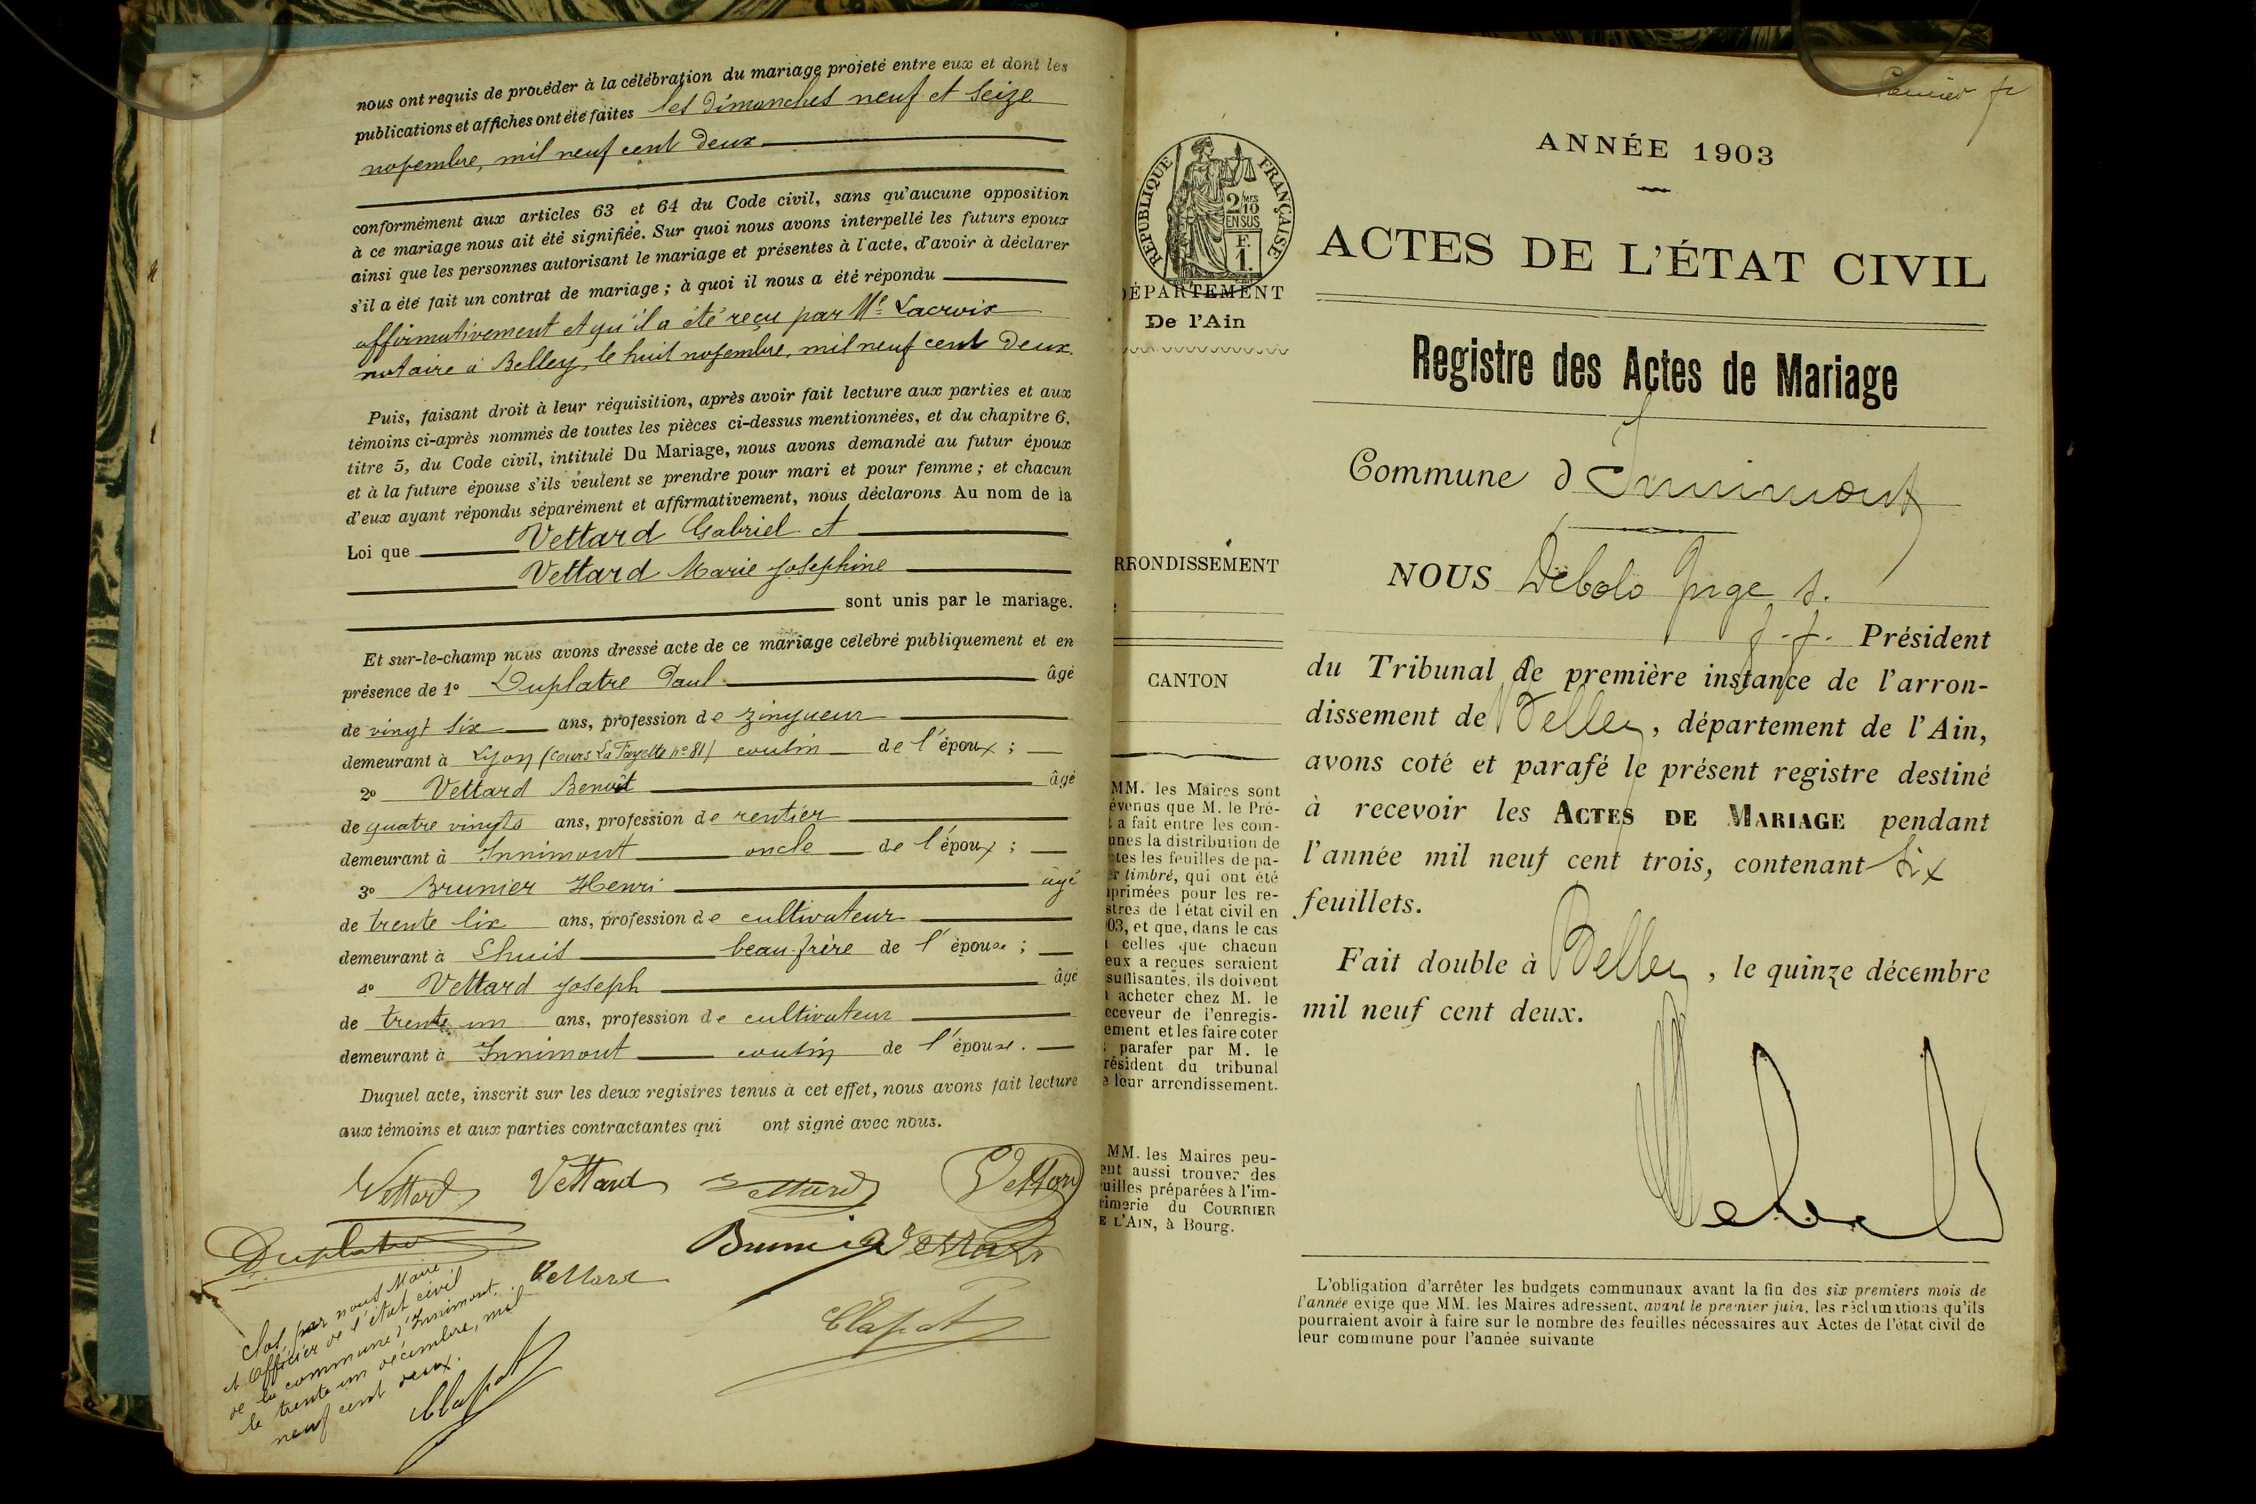 nous ont requis de procéder à la célébration du mariage projeté entre eux et dont les
publications et affiches ont été faites les dimanches neuf et seize
novembre, mil neuf cent deux
conformément aux articles 63 et 64 du Code civil, sans qu'aucune opposition
à ce mariage nous ait été signifiée. Sur quoi nous avons interpellé les futurs époux
ainsi que les personnes autorisant le mariage et présentes à l'acte, d'avoir à déclarer
s'il a été fait un contrat de mariage ; à quoi il nous a été répondu
affirmativement et qu'il a été reçu par Me Lacroix
notaire à Belley, le huit novembre, mil neuf cent deux.
Puis, faisant droit à leur réquisition, après avoir fait lecture aux parties et aux
témoins ci-après nommés de toutes les pièces ci-dessus mentionnées, et du chapitre 6,
titre 5, du Code civil, intitulé Du Mariage, nous avons demandé au futur époux
et à la future épouse s'ils veulent se prendre pour mari et pour femme ; et chacun
d'eux ayant répondu séparément et affirmativement, nous déclarons Au nom de la
Loi que Vettard Gabriel et
Vettard Marie Josephine
sont unis par le mariage.
Et sur-le-champ nous avons dressé acte de ce mariage célébré publiquement et en
présence de 1° Duplatre Paul âgé
de vingt six ans, profession de zingueur
demeurant à Lyon (Cours La Fayette n° 81) cousin de l'époux ;
2° Vettard Benoit âgé
de quatre vingts ans, profession de rentier
demeurant à Innimont oncle de l'époux ;
3° Brunier Henri âgé
de trente six ans, profession de cultivateur
demeurant à Lhuis beau-frère de l'épouse ;
4° Vettard Joseph âgé
de trente un ans, profession de cultivateur
demeurant à Innimont cousin de l'épouse.
Duquel acte, inscrit sur les deux registres tenus à cet effet, nous avons fait lecture
aux témoins et aux parties contractantes qui ont signé avec nous.
Vettard Vettard Vettard Vettard
Duplatre Brunier Vettard
Vettard
Clapot
Clos, par nous Maire
et Officier de l'état civil
de la commune d'Innimont,
le trente un décembre, mil
neuf cent deux.
Clapot
Premier f
ANNÉE 1903
RÉPUBLIQUE FRANÇAISE
2/10 MES
EN SUS
F.
1.
ACTES DE L'ÉTAT CIVIL
DÉPARTEMENT
De l'Ain
Registre des Actes de Mariage
Commune d Innimont
RRONDISSEMENT
NOUS Debolo Juge s.
f. f. Président
CANTON
du Tribunal de première instance de l'arron-
dissement de Belley, département de l'Ain,
avons coté et parafé le présent registre destiné
à recevoir les ACTES DE MARIAGE pendant
l'année mil neuf cent trois, contenant Six
feuillets.
Fait double à Belley, le quinze décembre
mil neuf cent deux.
MM. les Maires sont
évenus que M. le Pré-
t a fait entre les com-
unes la distribution de
tes les feuilles de pa-
er timbré, qui ont été
primées pour les re-
stres de l'état civil en
03, et que, dans le cas
celles que chacun
eux a reçues seraient
suffisantes, ils doivent
acheter chez M. le
eceveur de l'enregis-
ement et les faire coter
parafer par M. le
résident du tribunal
e leur arrondissement.
MM. les Maires peu-
ent aussi trouver des
uilles préparées à l'im-
rimerie du COURRIER
E L'AIN, à Bourg.
L'obligation d'arrêter les budgets communaux avant la fin des six premiers mois de
l'année exige que MM. les Maires adressent, avant le premier juin, les réclamations qu'ils
pourraient avoir à faire sur le nombre des feuilles nécessaires aux Actes de l'état civil de
leur commune pour l'année suivante